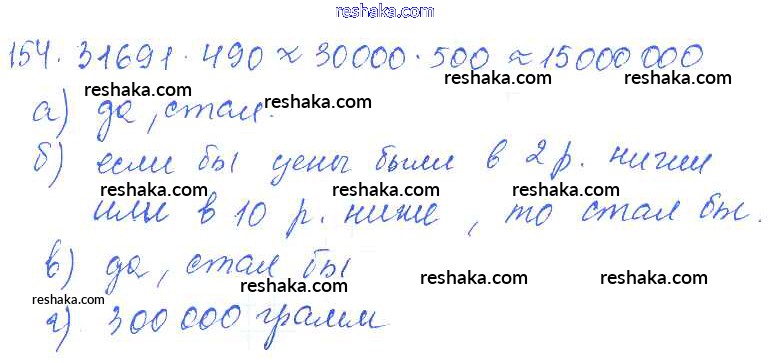 reshaka.com
154. 31691 · 490 ≈ 30000 · 500 ≈ 15000 000
reshaka.com reshaka.com reshaka.com
а) да, стал.
б) если бы цены были в 2 р. ниже
reshaka.com reshaka.com reshaka.com
или в 10 р. ниже, то стал бы.
в) да, стал бы
reshaka.com reshaka.com reshaka.com
г) 300 000 грамм